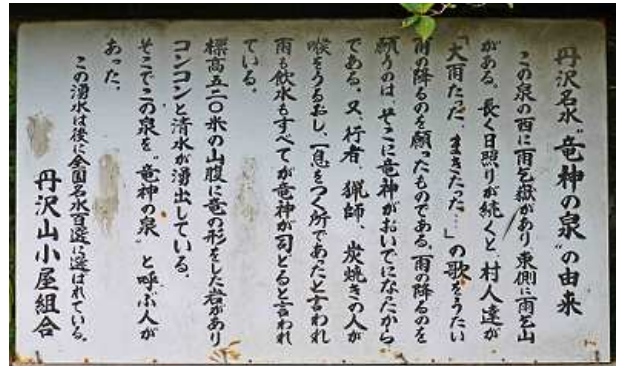 丹沢名水"竜神の泉"の由来
この泉の西に雨乞嶽があり東側に雨乞山
がある。長く日照りが続くと、村人達が
「大雨たった、まきたった…」の歌をうたい
雨の降るのを願ったものである。雨の降るのを
願うのは、そこに竜神がおいでになったから
である。又、行者、猟師、炭焼きの人が
喉をうるおし、一息をつく所であたと言われ
雨も飲水もすべてが竜神が司どると言われ
ている。
標高五二〇米の山腹に竜の形をした岩があり
コンコンと清水が湧出している。
そこでこの泉を"竜神の泉"と呼ぶ人が
あった、
この湧水は後に全国名水百選に選ばれている。
丹沢山小屋組合